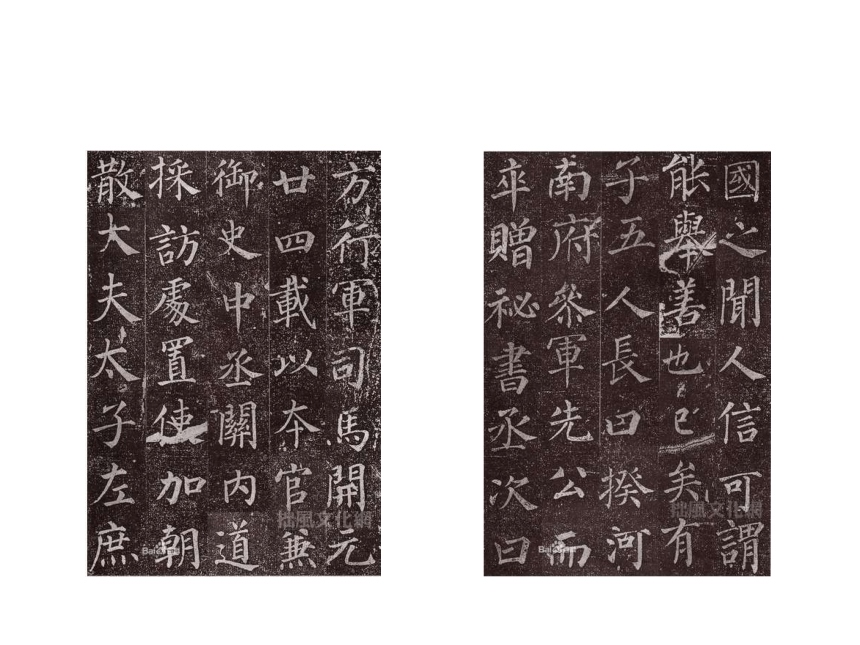 方行軍司馬開元
廿四載以夲官兼
御史中丞關内道
採訪處置使加朝
散大夫太子左庶
拙風文化網
國之聞人信可謂
能舉善也已矣有
子五人長曰揆河
南府叅軍先公而
卒贈祕書丞次曰
拙風文化網